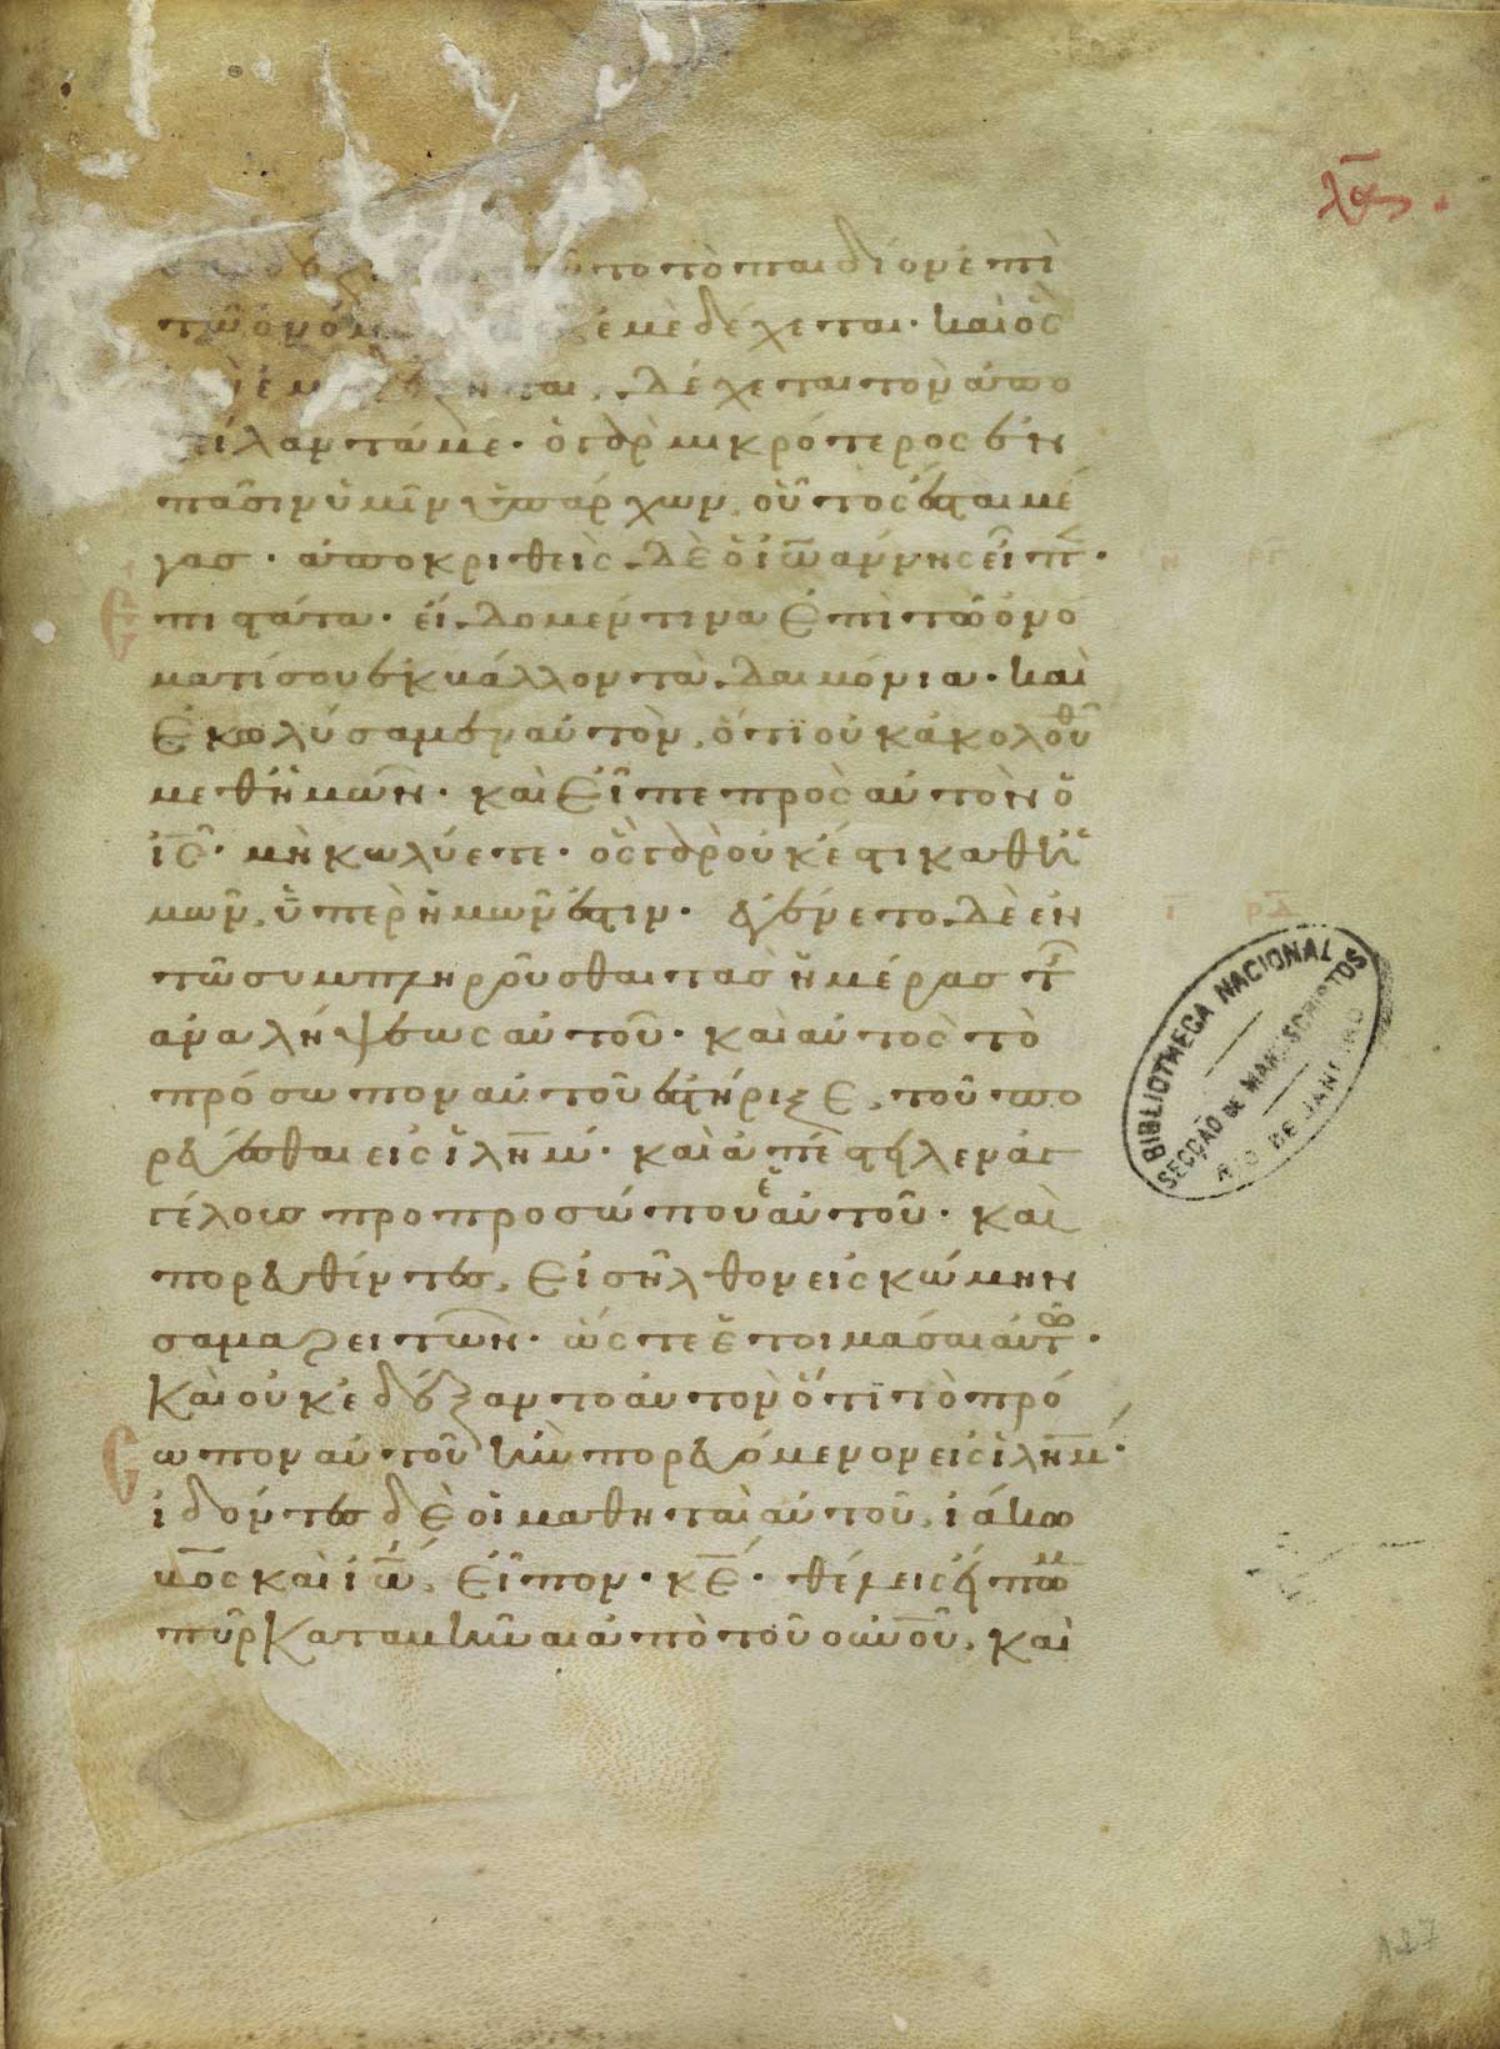 λϛ
τοῦτο τὸ παιδίον ἐπὶ
τῶ ὀνόμ ἐμὲ δέχεται· καὶ ὃς
δέχεται τὸν ἀπο
είλαντά με· ὁ γὰρ μικρότερος ἐν
πᾶσιν ὑμῖν ὑπάρχων, οὗτος ἔσται μέ
γασ· ἀποκριθεὶς δὲ ὁ ἰω̅άννης εἶπε·
Ε πιστάτα· εἴδομέν τινα ἐπὶ τῶ ὀνό
ματί σου ἐκβάλλοντα δαιμόνια· καὶ
ἐκωλύσαμεν αὐτὸν, ὅτι οὐκ ἀκολουθεῖ
μεθ ἡμῶν· καὶ εἶπε πρὸς αὐτὸν ὁ
ι̅ς̅· μὴ κωλύετε· ὃς γὰρ οὐκ ἔστι καθ ἡ
μῶν, ὑπὲρ ἡμῶν ἐστιν· ἐγένετο δὲ ἐν
τῶ συμπληροῦσθαι τὰσ ἡμέρασ τῆς
ἀναλήψεως αὐτοῦ· καὶ αὐτὸς τὸ
πρόσωπον αὐτοῦ ἐστήριξε, τοῦ πο
ρεύεσθαι εἰς ἰλη̅μ· καὶ ἀπέστειλεν ἀγ
γέλουσ πρὸ προσώπου ἑαὐτοῦ· καὶ
πορευθέντεσ, εἰσῆλθον εἰς κώμην
σαμαρειτῶν· ὥςτε ἑτοιμάσαι αὐτῶ·
Καὶ οὐκ ἐδέξαντο αὐτὸν ὅτι τὸ πρό
ωπον αὐτοῦ ἦν πορευόμενον εἰς ἰλη̅μ·
ἰδόντεσ δὲ οἱ μαθηταὶ αὐτοῦ, ἰάκω
βος καὶ ἰω̅, εἶπον· κ̅ε̅· θέλεις εἴπωμ
πῦρ καταβῆναι ἀπὸ τοῦ οὐ̅νοῦ, καὶ
η
ι ρδ
BIBLIOTHECA NACIONAL
SECÇÃO DE MANUSCRIPTOS
RIO DE JANEIRO
127